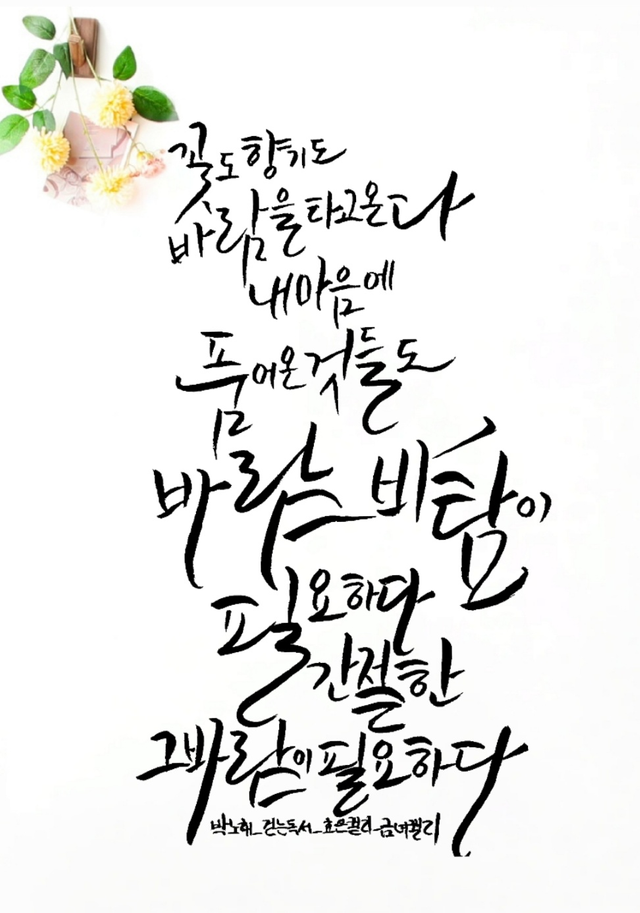 꽃도 향기도
바람을 타고 온다
내 마음에
품어온 것들도
바람
필요하다
간절한
그 바람이 필요하다
박노해_걷는독서_효은캘리_금녀캘리